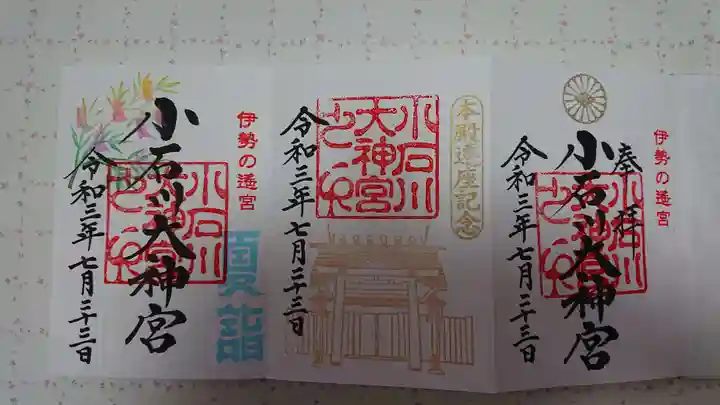 伊勢の遥宮
奉拝
小石川大神宮
小石川
令和三年七月二十三日
本殿遷座記念
小石川
大神宮
令和三年七月二十三日
伊勢の遥宮
夏詣
小石川大神宮
小石川
令和三年七月二十三日